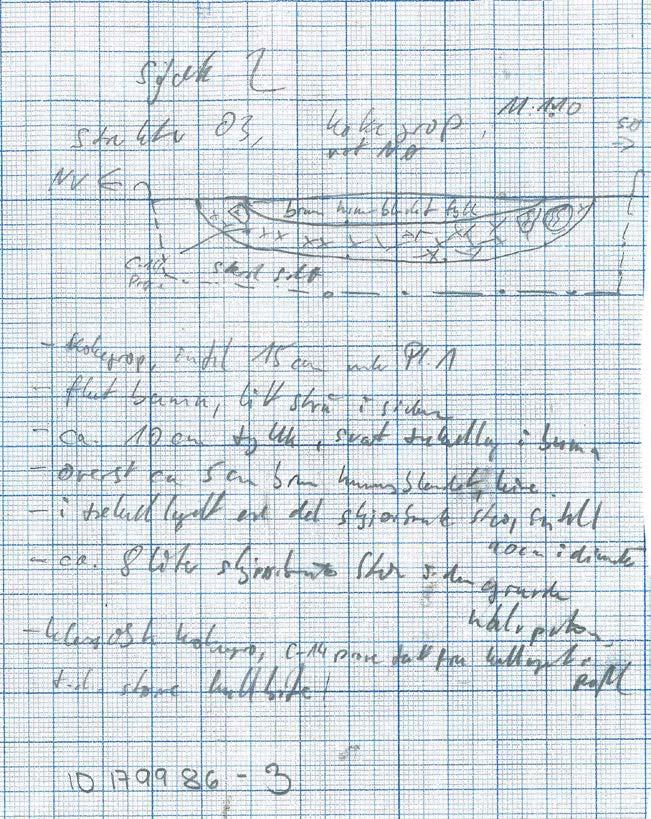 2
Struktur 03, kokegrop, M. 1:10
mot NØ
SØ
NV
brun humusblandet fyll
C-14
- Kokegrop, inntil 15 cm under Pl. 1
- flat bunn, litt skrå i siden
- ca. 10 cm tykk, svart trekullag i bunn
- øverst ca 5 cm brun humusblandet leire
- i trekullaget er det skjørbrent stein, inntil
10 cm i diameter
- ca. 8 liter skjørbrent stein i den gravde
halvparten
- klassisk kokegrop, C-14 prøve tatt fra kullaget i
profil
store kullbiter!
ID 179986 - 3